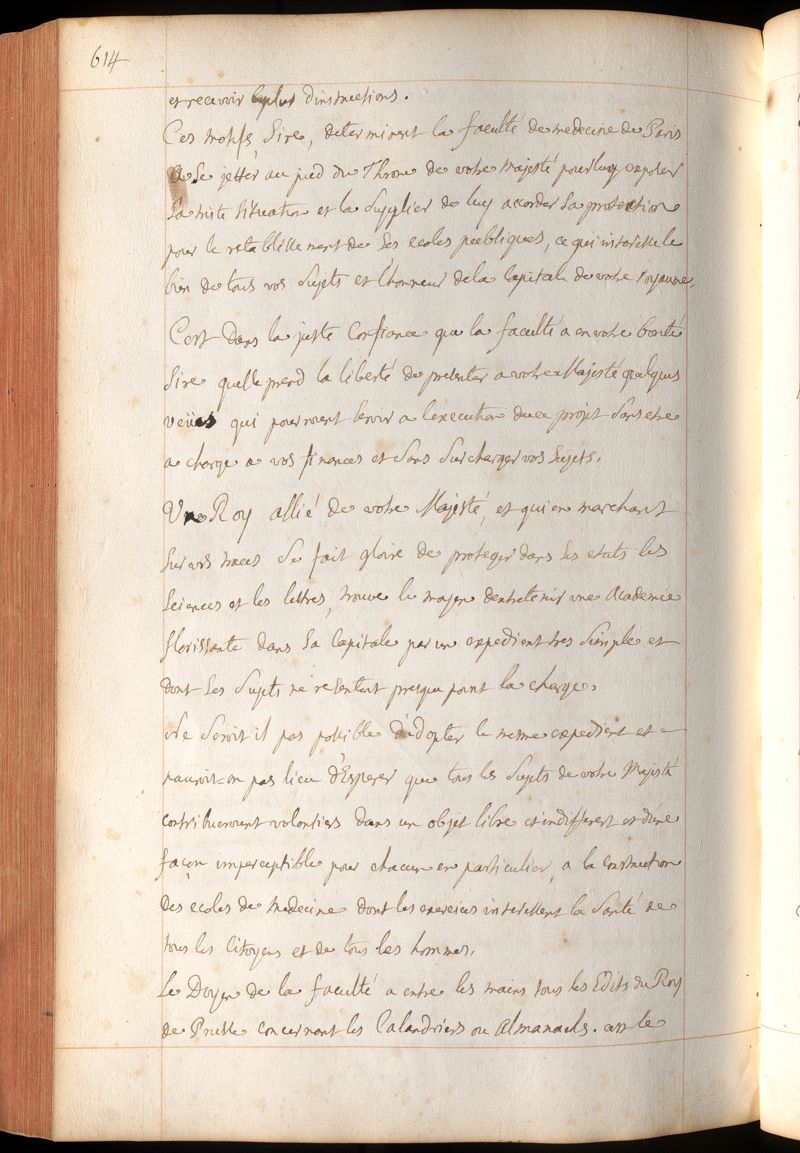 614
et recevoir le plus d'instructions.
Ces motifs, Sire, determinent la faculté de medecine de Paris
a Se jetter au pied du Throne de votre Majesté pour luy exposer
Sa triste Situation et la Supplier de luy accorder Sa protection
pour le retablissement de Ses ecoles publiques, ce qui interesse le
bien de tous vos Sujets et l'honneur de la Capitale de votre royaume.
C'est dans la juste Confiance que la faculté a en votre bonté
Sire quelle prend la liberté de presenter a votre Majesté quelques
veües qui pourroient Servir a l'execution de ce projet Sans etre
a charge a vos finances et Sans Surcharger vos Sujets.
Un Roy allié de votre Majesté, et qui en marchant
Sur vos traces Se fait gloire de proteger dans Ses etats les
Sciences et les lettres, trouve le moyen d'entretenir une Academie
florissante dans Sa Capitale par un expedient tres Simple et
dont Ses Sujets ne resentent presque point la charge.
Ne Seroit il pas possible d'adopter le meme expedient et
n'auroit=on pas lieu d'Esperer que tous les Sujets de votre Majesté
contribueroient volontiers dans un objet libre et indifferent et d'une
façon imperceptible pour chacun en particulier, a la construction
des ecoles de medecine dont les exercices interessent la Santé de
tous les Citoyens et de tous les hommes.
Le Doyen de la faculté a entre les mains tous les Edits du Roy
de Prusse concernant les Calandriers ou Almanachs. le